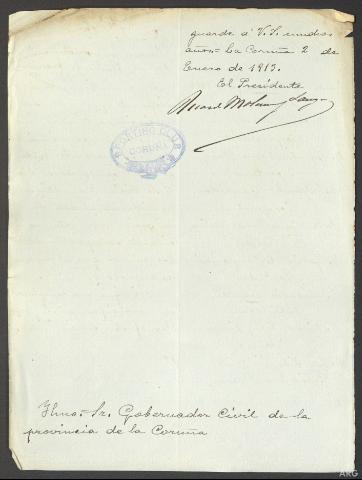 guarde á V. S. muchos
años.- La Coruña 2 de
Enero de 1913.
El Presidente
Ricardo Molina
SPORTING CLUB
CORUÑA
Ilmo.- Sr. Gobernador Civil de la
provincia de la Coruña
ARG